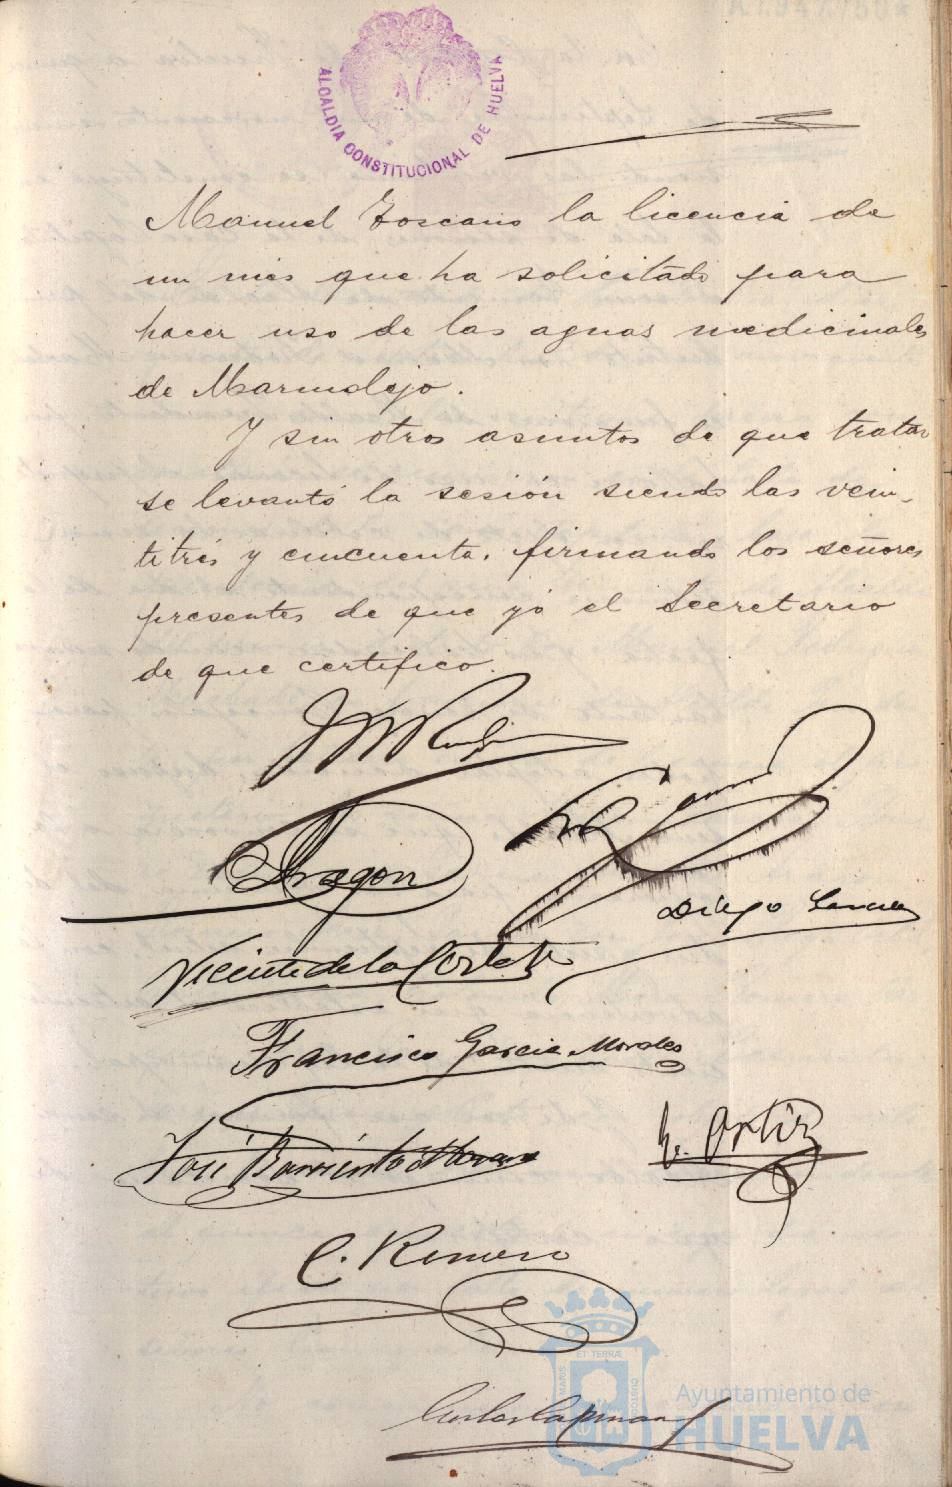 ALCALDIA CONSTITUCIONAL DE HUELVA
Manuel Toscano la licencia de
un mes que ha solicitado para
hacer uso de las aguas medicinales
de Marmolejo.
Y sin otros asuntos de que tratar
se levantó la sesión siendo las vein-
titrés y cincuenta, firmando los señores
presentes de que yó el Secretario
de que certifico.
Aragon
Diego
Vicente de la Corte
Francisco Garcia Morales
José Barriento Moreno
Ortiz
C. Romero
ET TERRÆ
MARIS
CUSTODITO
Ayuntamiento de
HUELVA